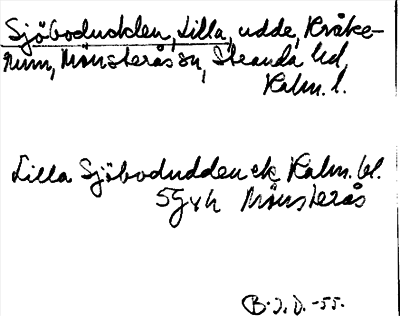 Sjöbodudden, Lilla, udde, Kråke-
rum, Mönsterås sn, Stranda hd,
Kalm. l.
Lilla Sjöbodudden ek Kalm. bl.
5G vh Mönsterås
B.J.D. -55.